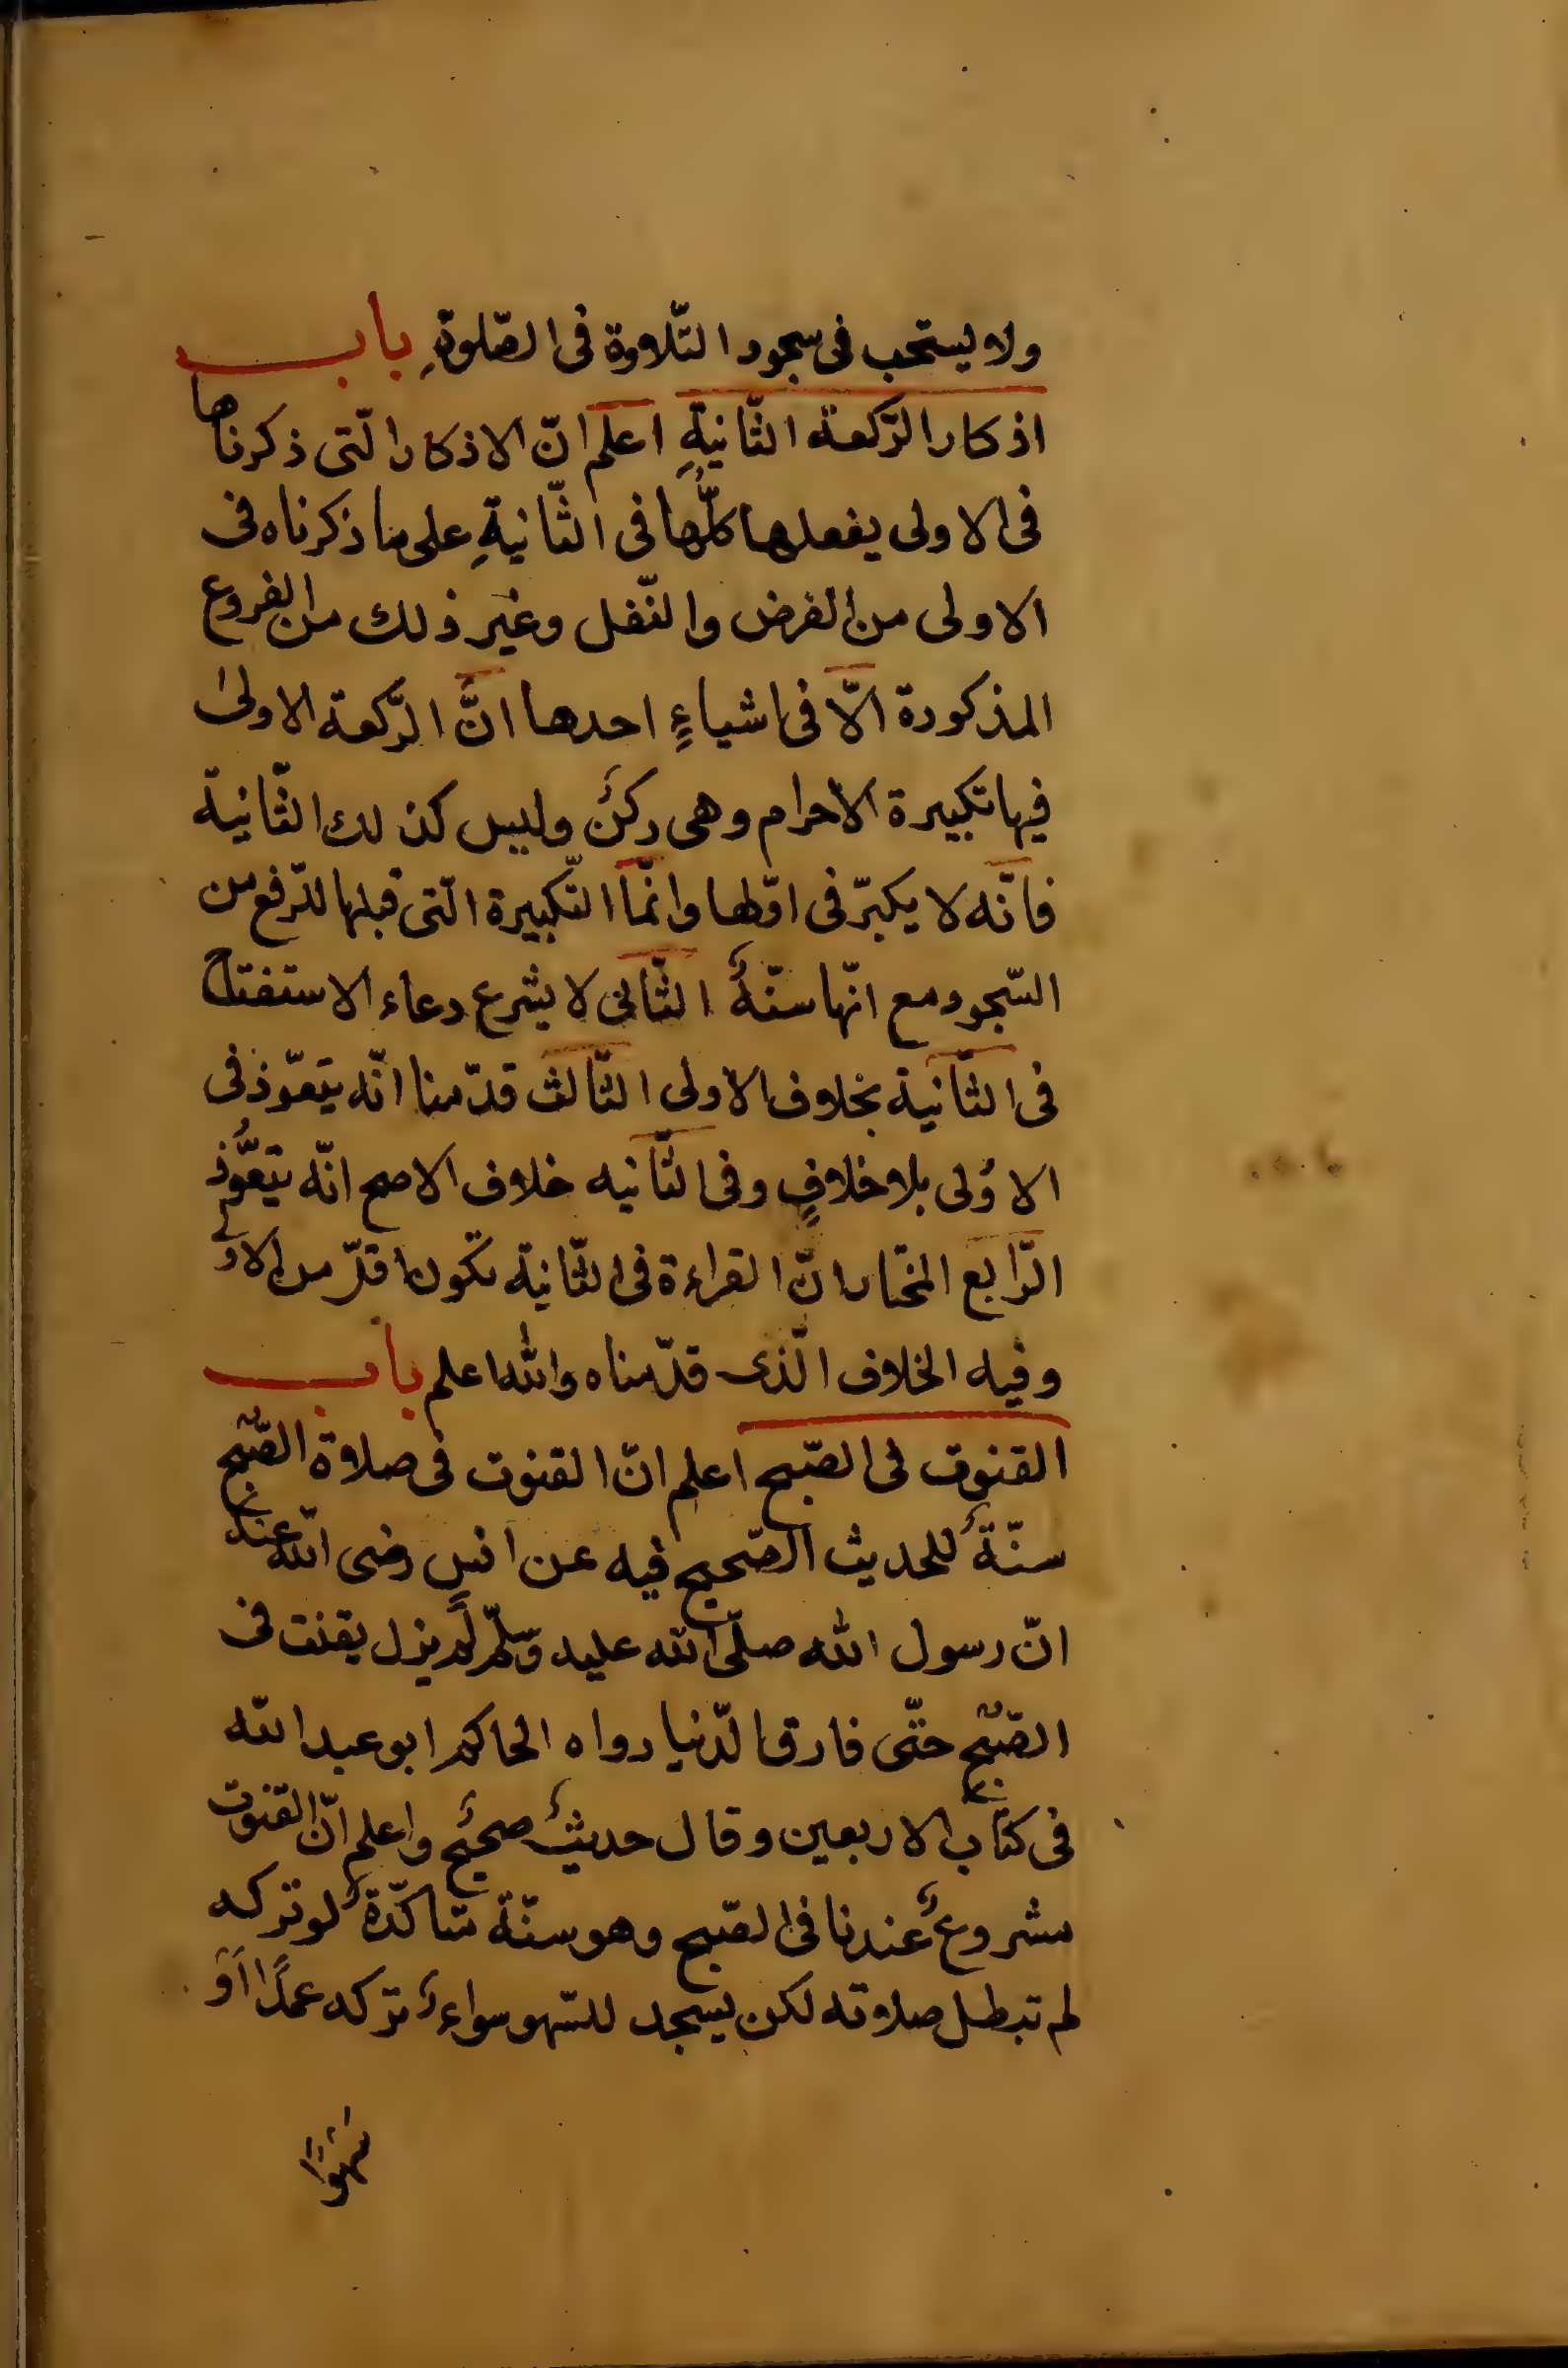 ولا يستحب فى سجود التّلاوة فى الصّلوةِ باب
اذكار الرّكعة الثّانيةِ اعلم انّ الاذكار الّتى ذكرناها
فى الاولى يفعلها كلَّها فى الثّانيةِ على ما ذكرناه فى
الاولى من الفرض والنّفل وغير ذلك من الفروع
المذكورة الّا فى اشياءٍ احدها انَّ الرّكعة الاولىٰ
فيها تكبيرة الاحرام وهى ركنٌ وليس كذلك الثّانية
فانّه لا يكبرّ فى اوّلها وانّما التّكبيرة الّتى قبلها للرّفع من
السّجود مع انّها سنّةٌ الثّانى لا يشرع دعاء الاستفتاح
فى الثّانية بخلاف الاولى الثّالث قدّمنا انّه يتعوّذ فى
الاوُلى بلا خلافٍ وفى الثّانيه خلاف الاصح انّه يتعوَّذ
الرّابع المختار انّ القراءة فى الثّانية تكون اقلّ من الاولى
وفيه الخلاف الّذى قدّمناه والله اعلم باب
القنوت فى الصّبح اعلم انّ القنوت فى صلاة الصّبح
سنّةٌ للحديث الصّحيح فيه عن انسٍ رضى الله عنه
انّ رسول الله صلّى الله عليه وسلّم لم يزل يقنت فى
الصّبح حتّى فارق الدّنيا رواه الحاكم ابو عبد الله
فى كتاب الاربعين وقال حديثٌ صحيحٌ واعلم انّ القنوت
مشروعٌ عندنا فى الصّبح وهو سنّة متاكّدةٌ لو تركه
لم تبطل صلاته لكن يسجد للسّهو سواءٌ تركه عمدًا اَوْ
سَهْوًا